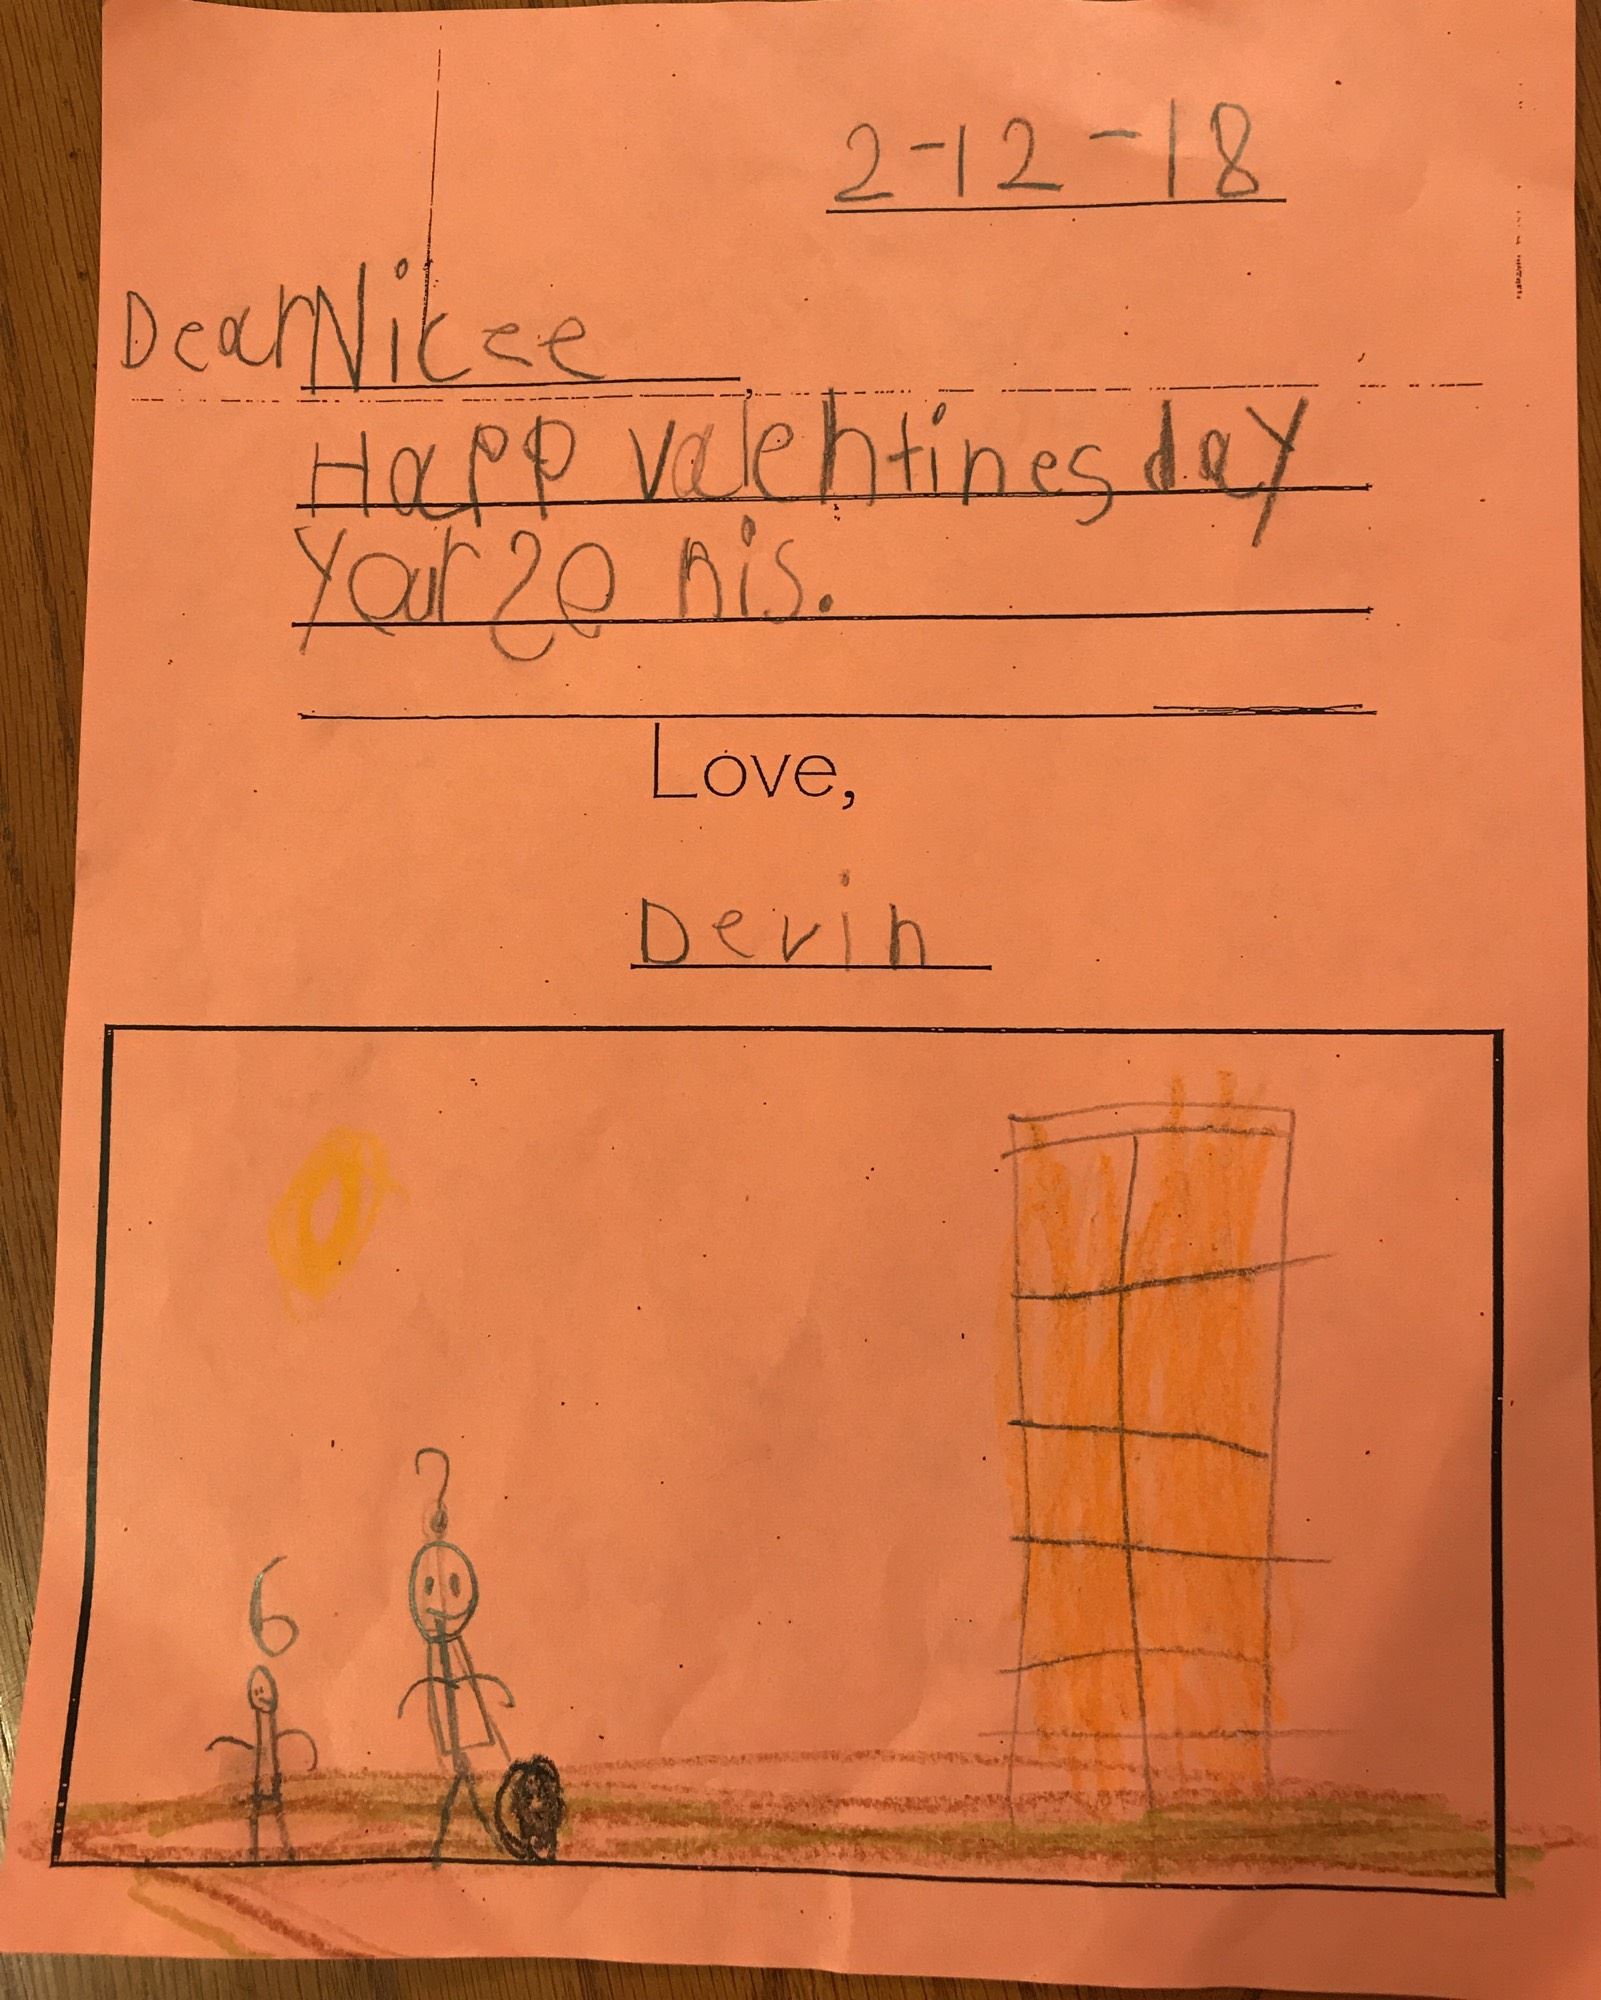 2-12-18
Dear Nicee,
Happ valentines day
Your so nis.
Love,
Devin
?
6